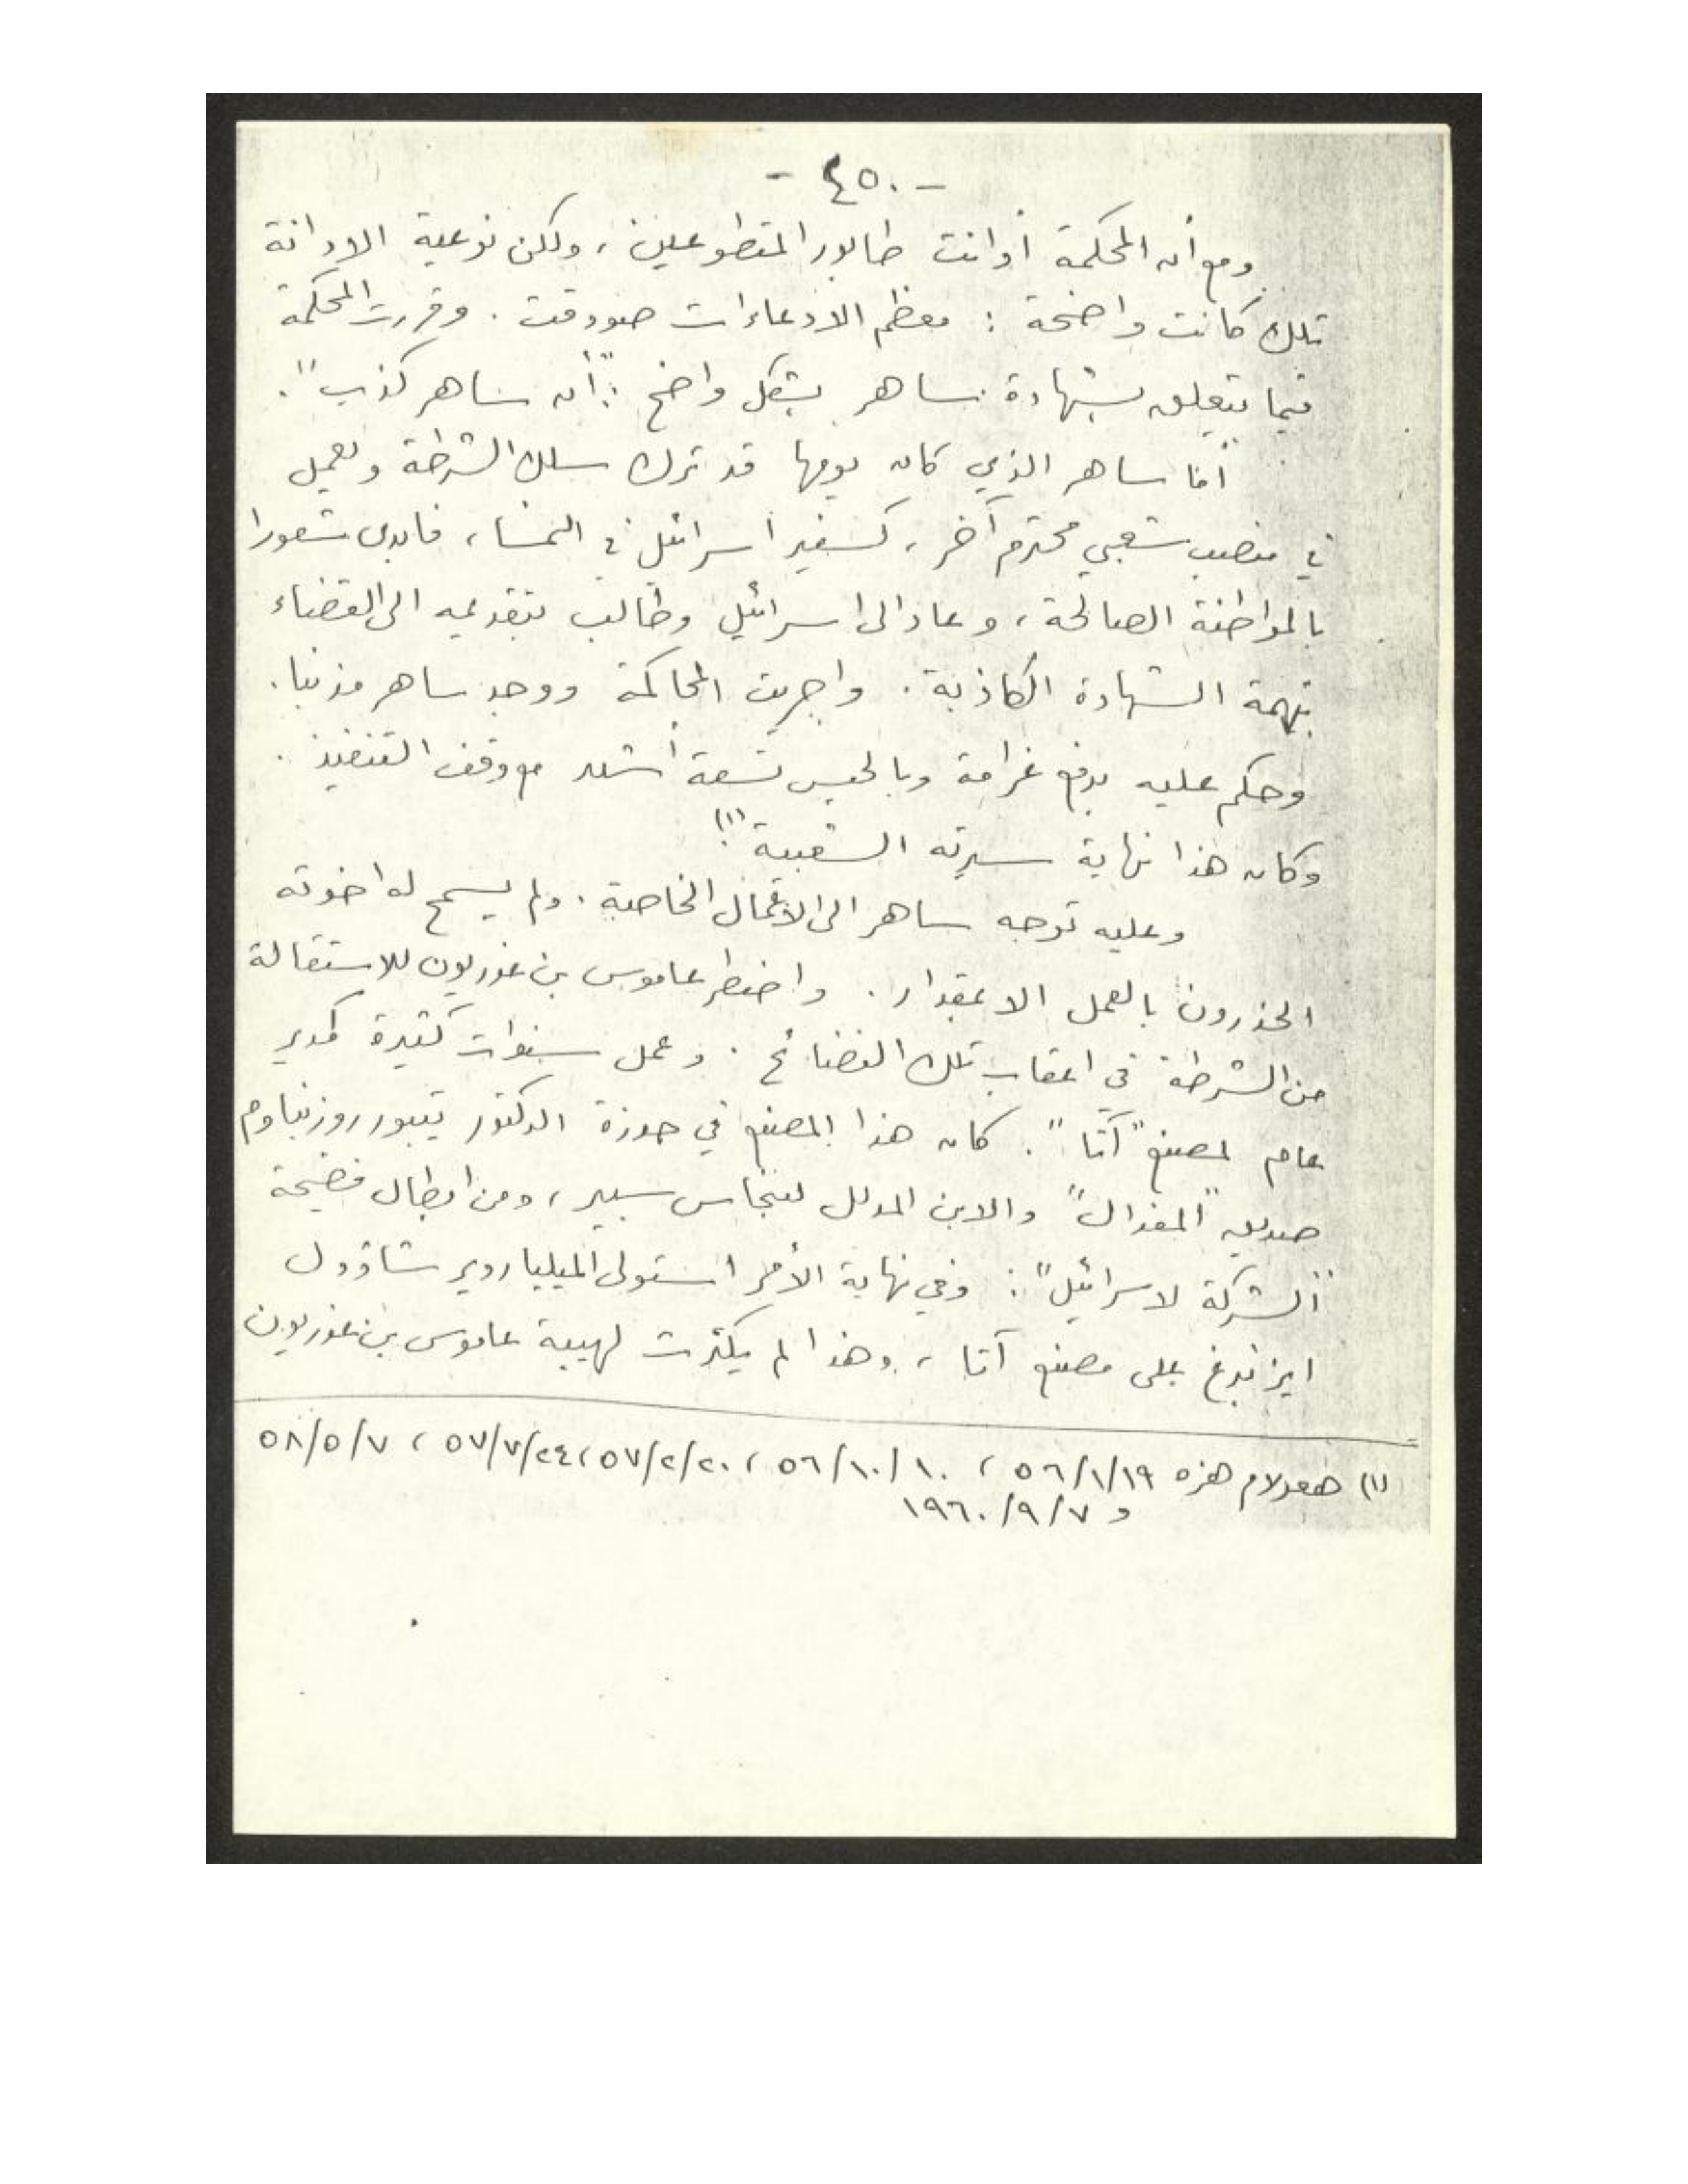 - ٤٥٠ -
ومع أن المحكمة أدانت طابور المتطوعين ، ولكن نوعية الادانة
تلك كانت واضحة : معظم الادعاءات صودقت . وقررت المحكمة
فيما يتعلق بشهادة ساهر بشكل واضح : "أن ساهر كذب" .
"أما ساهر الذي كان يومها قد ترك سلك الشرطة ويعمل
في منصب شعبي محترم آخر ، كسفير اسرائيل في النمسا ، فابدى شعورا
بالمواطنة الصالحة ، وعاد الى اسرائيل وطالب بتقديمه الى القضاء
بتهمة الشهادة الكاذبة . واجريت المحاكمة ووجد ساهر مذنبا .
وحكم عليه بدفع غرامة وبالحبس تسعة أشهر مع وقف التنفيذ .
وكان هذا نهاية سيرته الشعبية" (١)
وعليه توجه ساهر الى الاعمال الخاصة . ولم يسمح له اخوته
الحذرون بالعمل الا بمقدار . واضطر عاموس بن غوريون للاستقالة
من الشرطة في اعقاب تلك الفضائح . وعمل سنوات كثيرة كمدير
عام لمصنع "آتا" . كان هذا المصنع في حوزة الدكتور تيبور روزنباوم
صديق "المفدال" والابن المدلل لبنحاس سبير ، ومن ابطال فضيحة
"الشركة لاسرائيل" : وفي نهاية الأمر استولى الميلياردير شاؤول
ايزنبرغ على مصنع آتا ، وهذا لم يكترث لهيبة عاموس بن غوريون
(١) هعولام هزه ٥٦/١/١٩ ، ٥٦/١٠/١٠ ، ٥٧/٢/٢٠ ، ٥٧/٧/٢٤ ، ٥٨/٥/٧
و ١٩٦٠/٩/٧